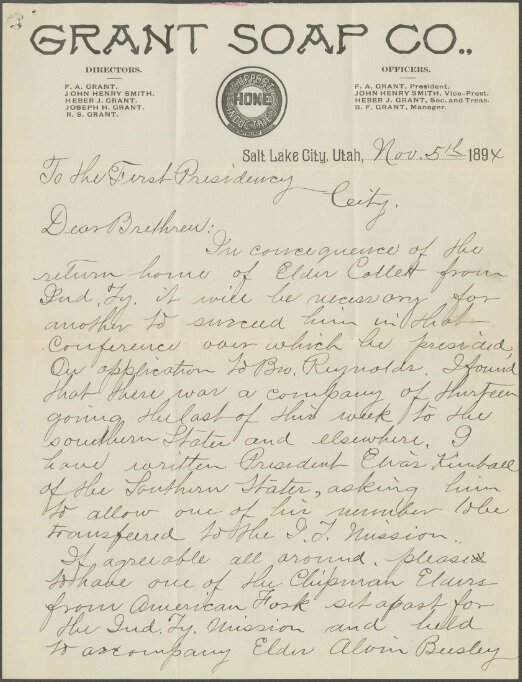 GRANT SOAP CO..
DIRECTORS.
F. A. GRANT.
JOHN HENRY SMITH.
HEBER J. GRANT.
JOSEPH H. GRANT.
R. S. GRANT.
SUPPORT
HOME
INDUSTRIES
OFFICERS.
F. A. GRANT, President.
JOHN HENRY SMITH, Vice-Prest.
HEBER J. GRANT, Sec. and Treas.
B. F. GRANT, Manager.
Salt Lake City, Utah, Nov. 5th 1894
To the First Presidency
City.
Dear Brethren:
In concequence of the
return home of Elder Collett from
Ind. Ty. it will be necessary for
another to succeed him in that
conference over which he presided,
On application to Bro. Reynolds. I found
that there was a company of thirteen
going the last of this week to the
southern States and elsewhere. I
have written President Elias Kimball
of the Southern States, asking him
to allow one of his number to be
transfered to the I. T. Mission.
If agreeable all around. please
to have one of the Chipman Elders
from American Fork set apart for
the Ind. Ty. Mission and held
to accompany Elder Alvin Beesley